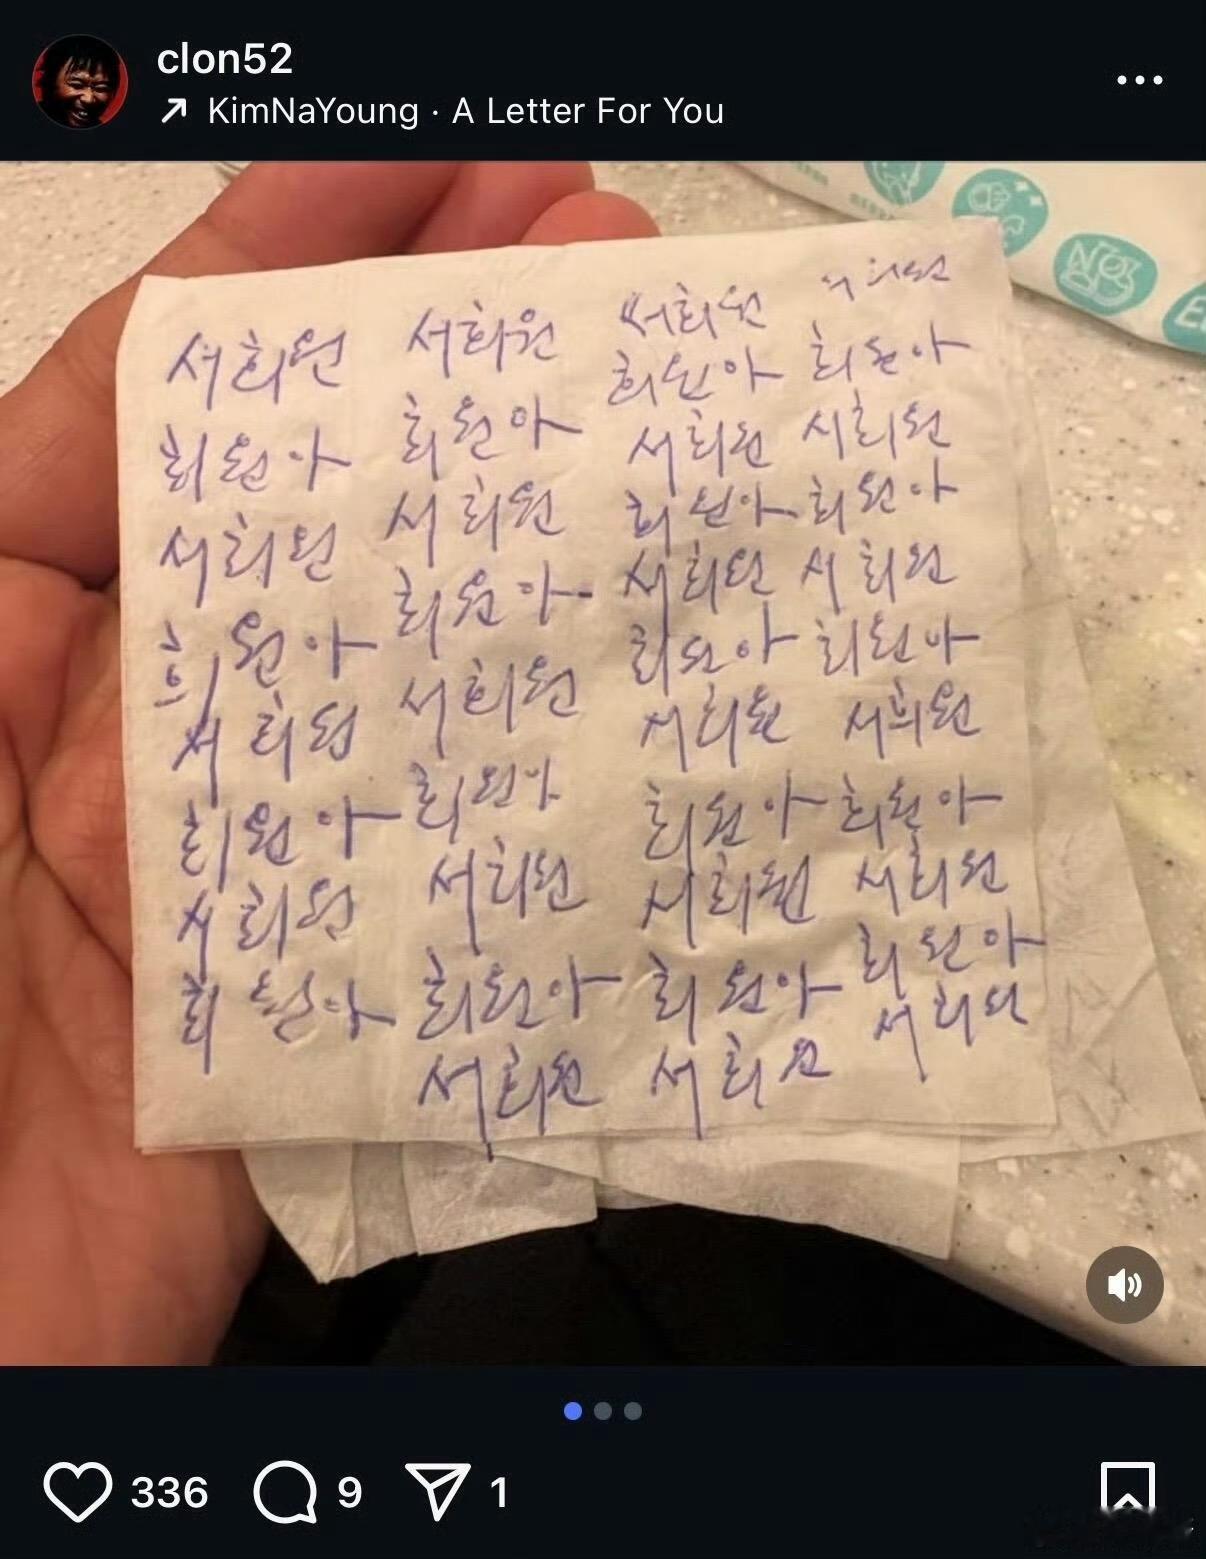 clon52
KimNaYoung · A Letter For You
서희원
희원아
서희원
희원아
서희원
희원아
서희원
희원아
서희원
희원아
서희원
희원아
서희원
희원아
서희원
희원아
서희원
서희원
희원아
서희원
희원아
서희원
희원아
서희원
희원아
서희원
희원아
서희원
희원아
서희원
희원아
서희원
희원아
서희원
희원아
서희원
희원아
서희원
336
9
1